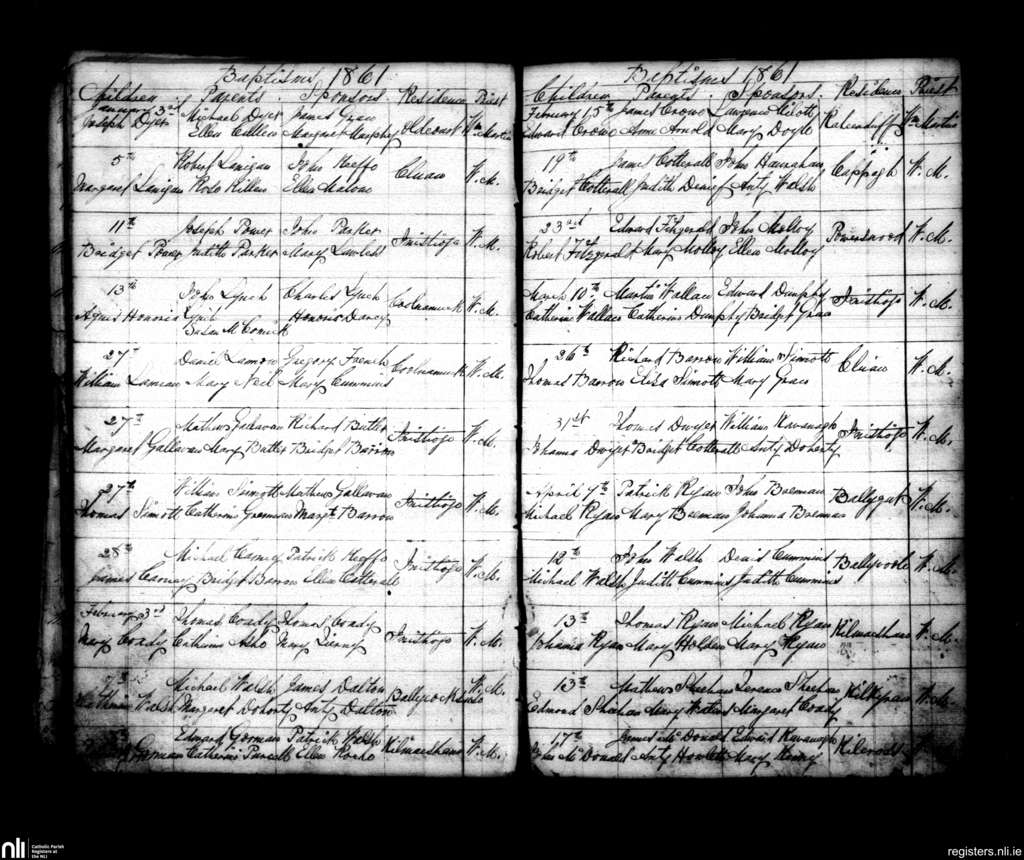 Baptisms 1861
Children Parents Sponsors Residence Priest
January 3rd Michael Dyer James Grace
Joseph Dyer Ellen Cullen Margaret Murphy Oldcourt Wm Martin
5th Robert Lanigan John Keeffe
Margaret Lanigan Rose Killen Ellen Malone Cluan W. M.
11th Joseph Power John Parker
Bridget Power Judith Parker Mary Lawless Inistioge W. M.
13th John Lynch Charles Lynch
Agnes Honoria Lynch Honoria Darcy Coolnamuck W. M.
Susan McCormick
27th Daniel Lamon Gregory French
William Mary Neil Mary Cummins Coolnamuck W. M.
27th Mathew Gallavan Richard Butler
Margaret Gallavan Mary Butler Bridget Barron Inistioge W. M.
27th William Sinnott Mathew Gallavan
Thomas Sinnott Catherine Margt Barron Inistioge W. M.
28th Michael Carney Patrick Keeffe
James Carney Bridget Barron Ellen Cotterall Inistioge W. M.
February 3rd Thomas Coady Thomas Coady
Mary Coady Catherine Mary Inistioge W. M.
Michael Walsh James Dalton
Catherine Walsh Margaret Doherty Anty Dalton W. M.
Edward Gorman Patrick Walsh
Gorman Catherine Purcell Ellen Roche W. M.
Baptisms 1861
Children Parents Sponsors Residence Priest
February 15th James Crowe Lawrence
Edward Crowe Anne Arnold Mary Doyle Wm Martin
19th James Cotterall John Hanrahan
Bridget Cotterall Judith Anty Walsh Cappagh W. M.
23rd Edward Fitzgerald John Molloy
Robert Fitzgerald Mary Molloy Ellen Molloy Powerswood W. M.
March 10th Martin Wallace Edward Dunphy
Catherine Wallace Catherine Dunphy Bridget Grace Inistioge W. M.
26th Richard Barron William Sinnott
Thomas Barron Eliza Sinnott Mary Grace Cluan W. M.
31st Thomas Dwyer William Kavanagh
Johanna Dwyer Bridget Cotterall Anty Doherty Inistioge W. M.
April 7th Patrick Ryan John Brennan
Michael Ryan Mary Brennan Johanna Brennan W. M.
12th John Walsh Denis Cummins
Michael Walsh Judith Cummins Judith Cummins Ballygoole W. M.
13th Thomas Ryan Michael Ryan
Johanna Ryan Mary Holden Mary Ryan W. M.
13th Mathew Sheehan Terence Sheehan
Edmond Sheehan Mary Waters Margaret Coady W. M.
17th James McDonald Edward Kavanagh
John McDonald Anty Howlett Mary Kenny
nli Catholic Parish
Registers at
the NLI
registers.nli.ie